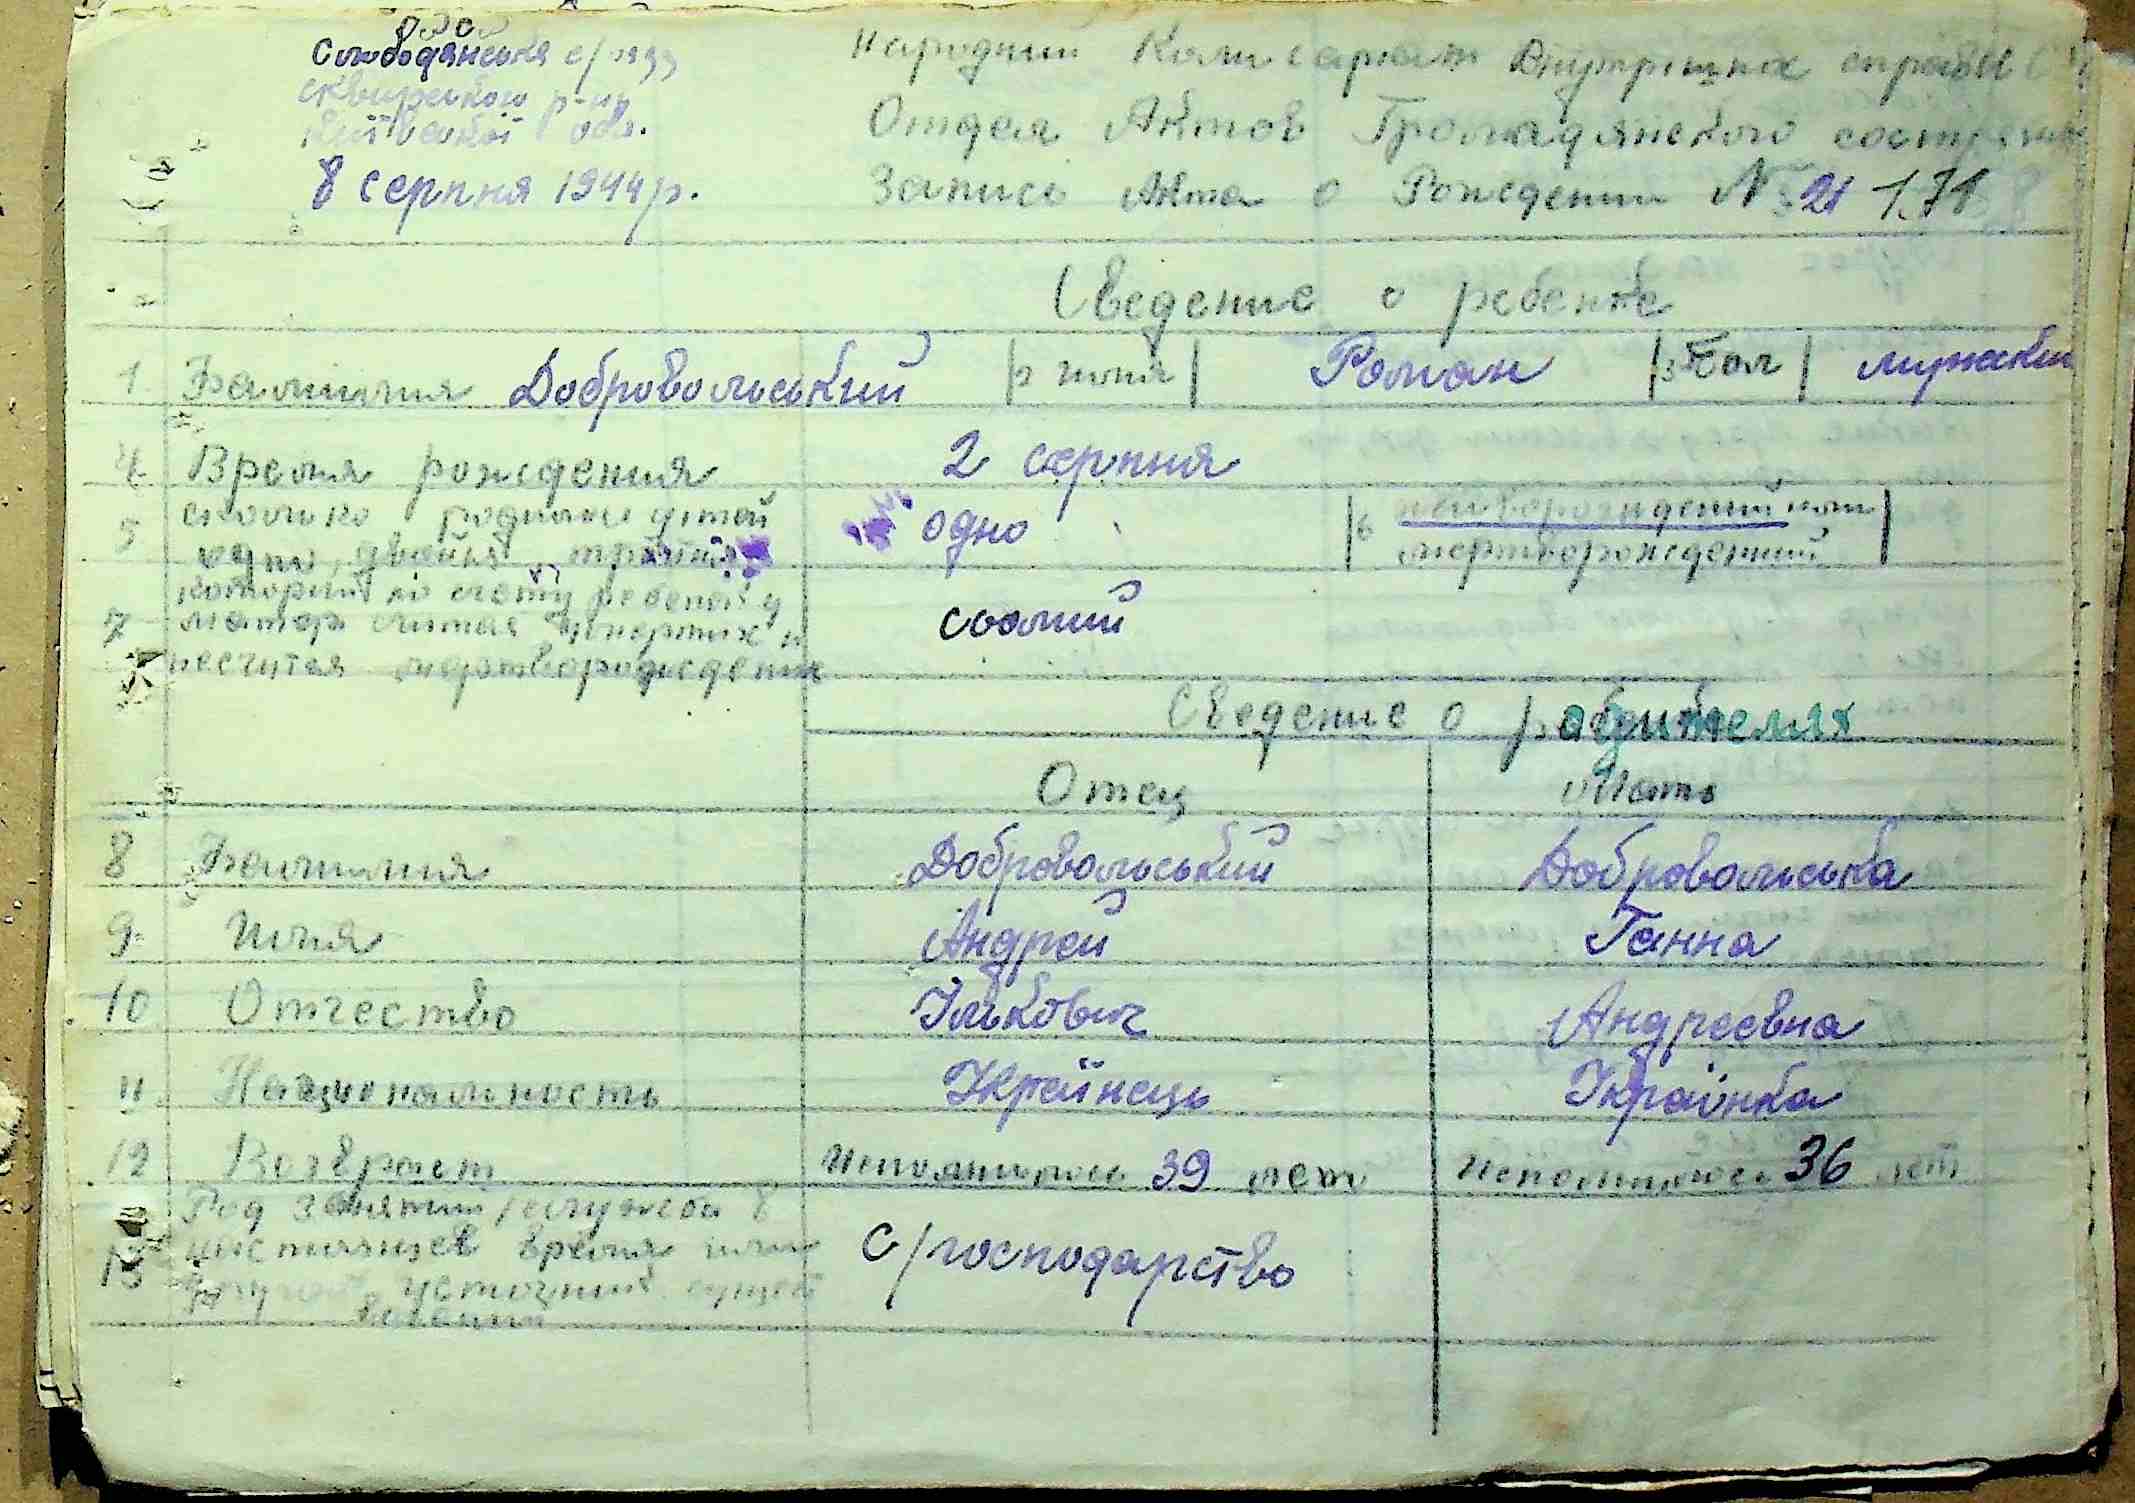 Слободянська с/рада
Сквирського р-ну
Київської обл.
8 серпня 1944 р.
Народний Комисариат Внутрешних справ
Отдел Актов Громадянского состояния
Запись Акта о Рождении № 21
Сведение о ребенке
1 Фамилия Добровольський | 2 имя | Роман | 3 Пол | мужский
4 Время рождения 2 серпня
5 сколько родилось дитей одно, двойня, тройня одно | 6 живорожденний или мертворожденний |
7 которий по счету ребенок у матери считая умерших и несчитая мертворожденних
Сведение о радителях
Отец Мать
8 Фамилия Добровольський Добровольська
9 Имя Андрей Ганна
10 Отчество Ількович Андреевна
11 Национальность Українець Українка
12 Возраст Исполнилось 39 лет Исполнилось 36 лет
13 Род занятий /служба в настоящее время или источник существования с/господарство